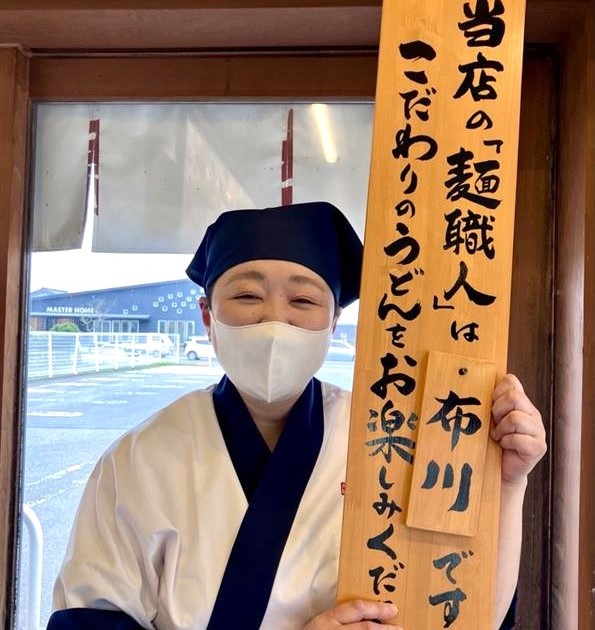 当店の「麺職人」は・布川です
こだわりのうどんをお楽しみくだ
MASTER HOME